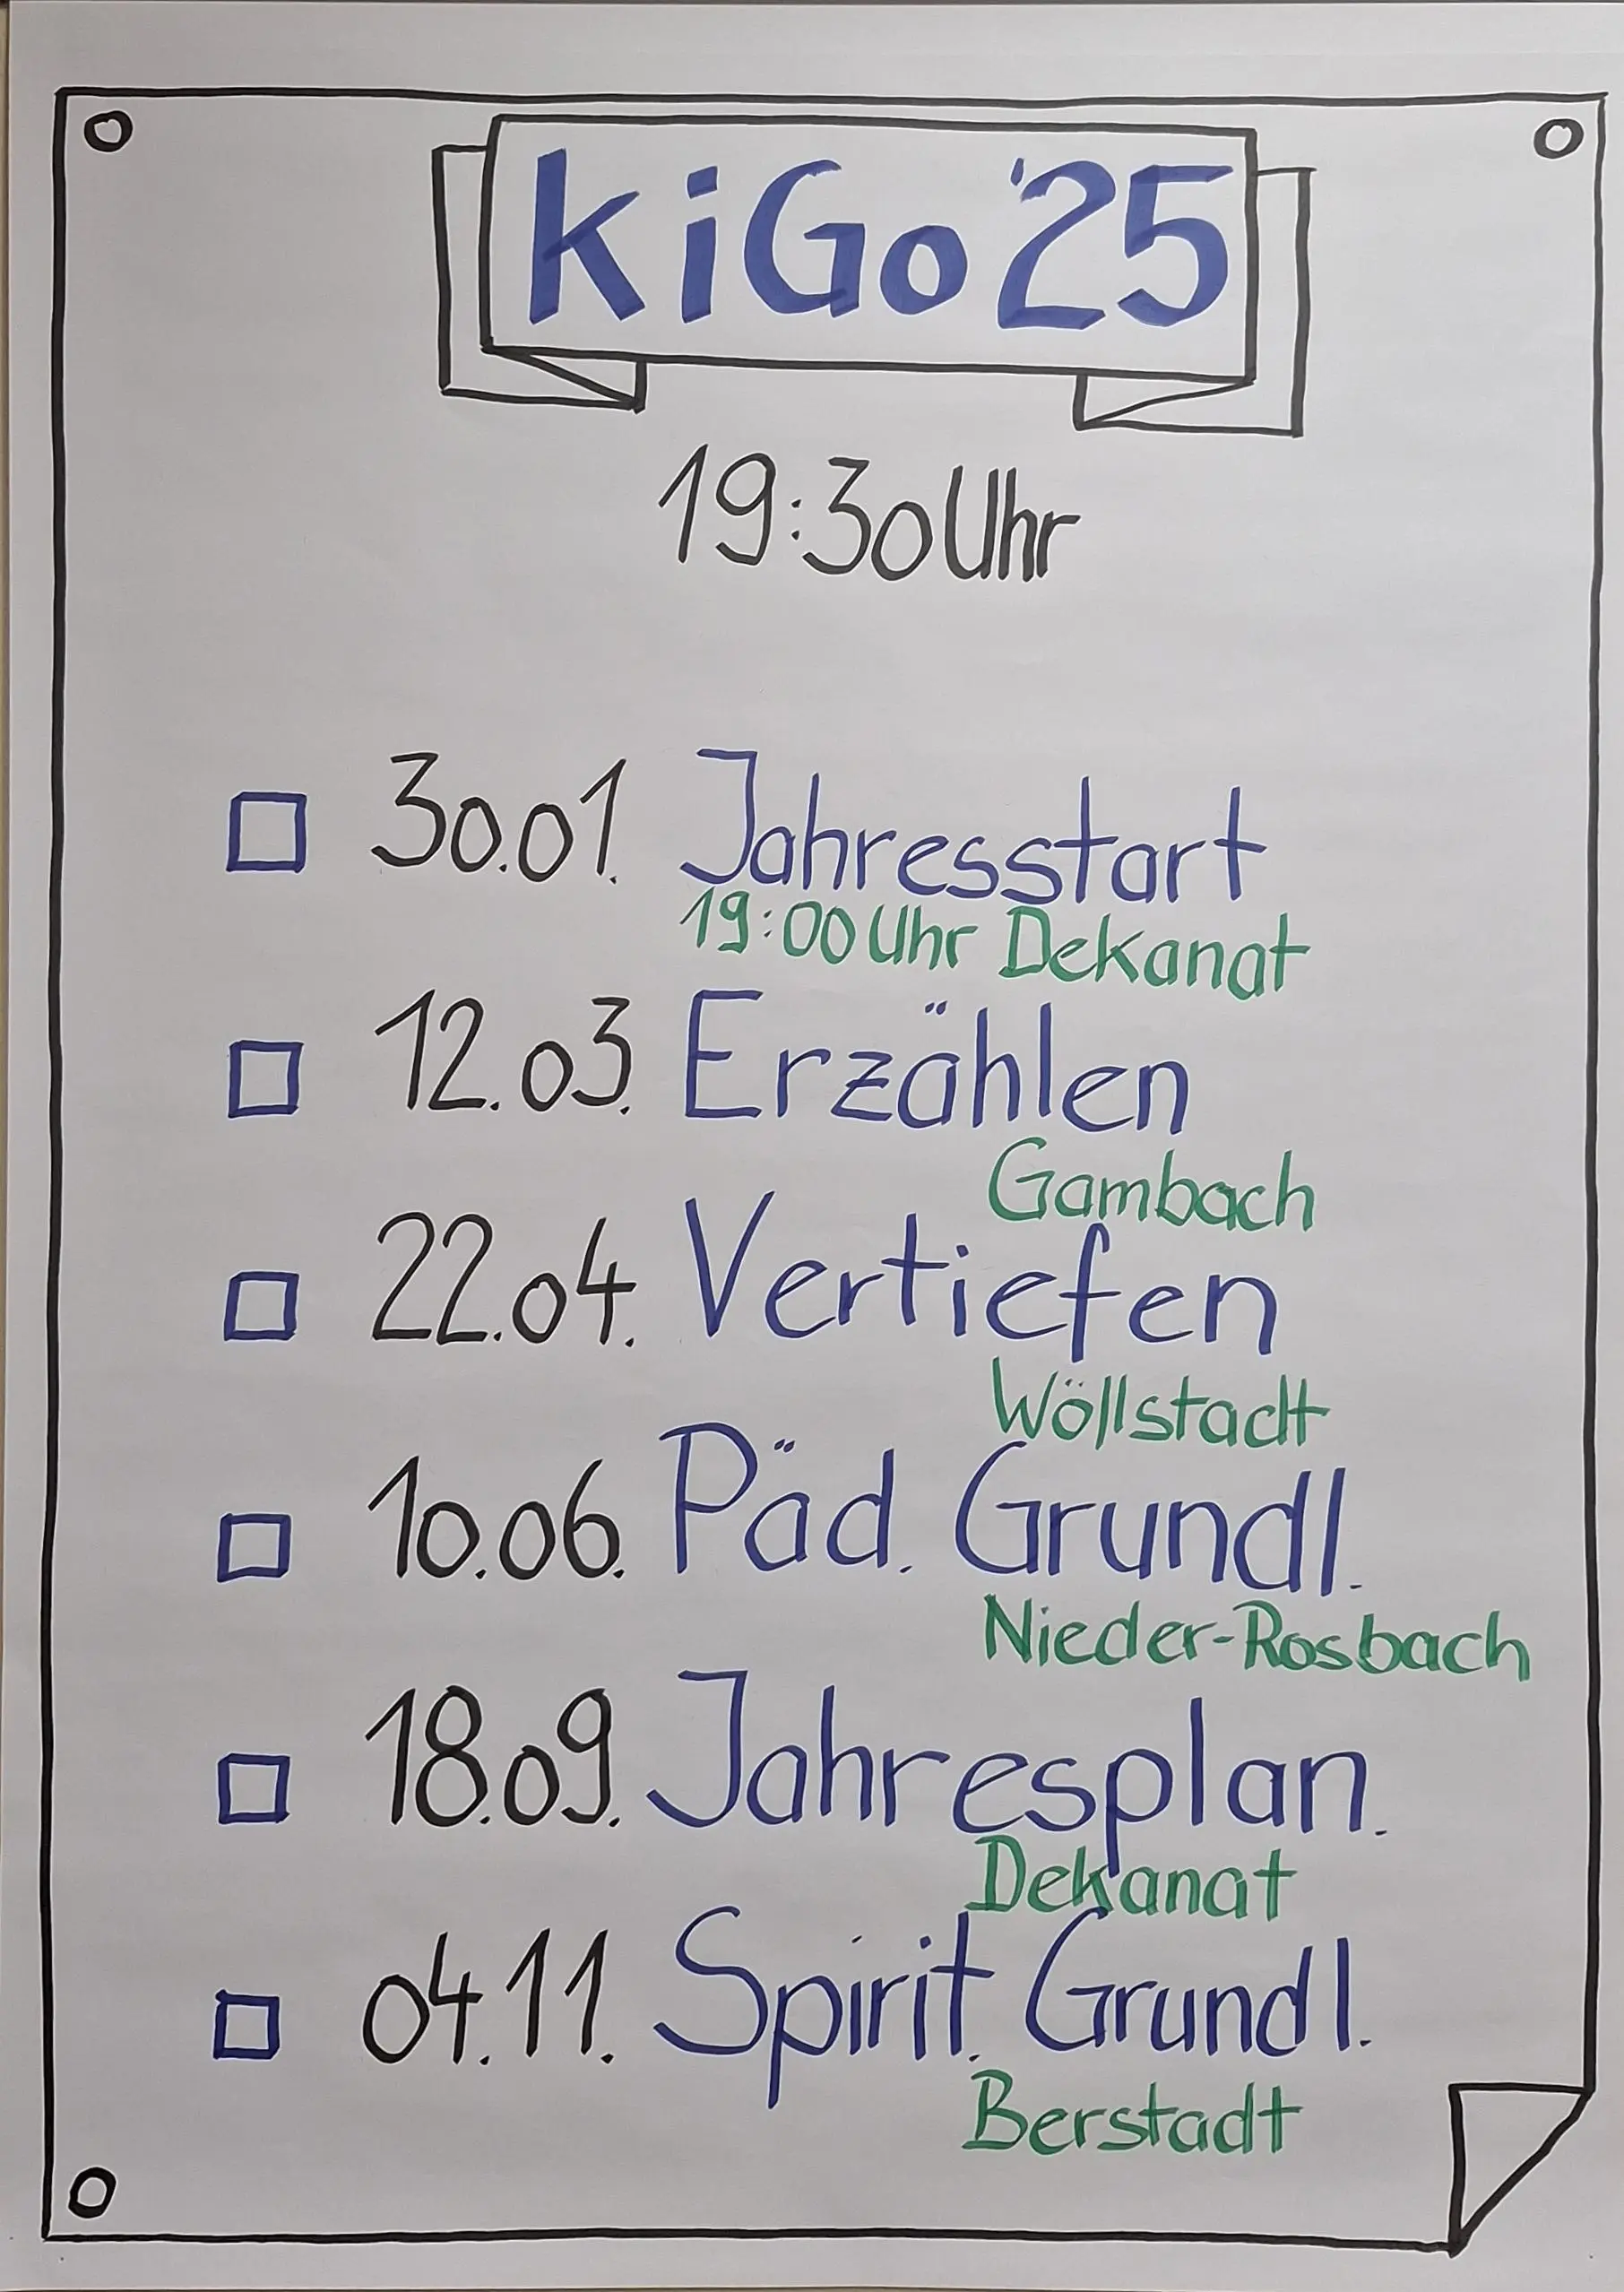 KiGo '25
19:30 Uhr
30.01. Jahresstart
19:00 Uhr Dekanat
12.03. Erzählen
Gambach
22.04. Vertiefen
Wöllstadt
10.06. Päd. Grundl.
Nieder-Rosbach
18.09. Jahresplan.
Dekanat
04.11. Spirit. Grundl.
Berstadt